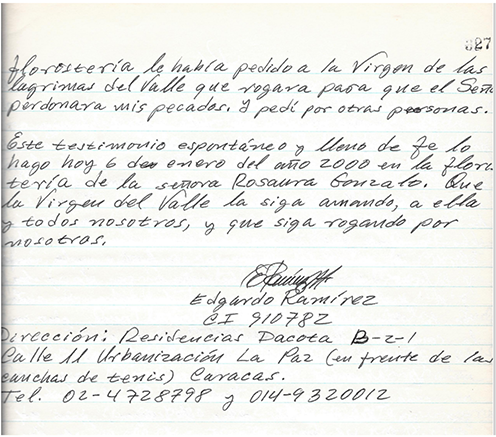 027
florostería le había pedido a la Virgen de las
lagrimas del Valle que rogara para que el Seño
perdonara mis pecados. Y pedí por otras personas.
Este testimonio espontáneo y lleno de fe lo
hago hoy 6 de enero del año 2000 en la flori
tería de la señora Rosaura Gonzalo. Que
la Virgen del Valle la siga amando, a ella
y todos nosotros, y que siga rogando por
nosotros.
Edgardo Ramírez
CI 910782
Dirección: Residencias Dacota B-2-1
Calle 11 Urbanización La Paz (en frente de las
canchas de tenis) Caracas.
Tel. 02-4728798 y 014-9320012